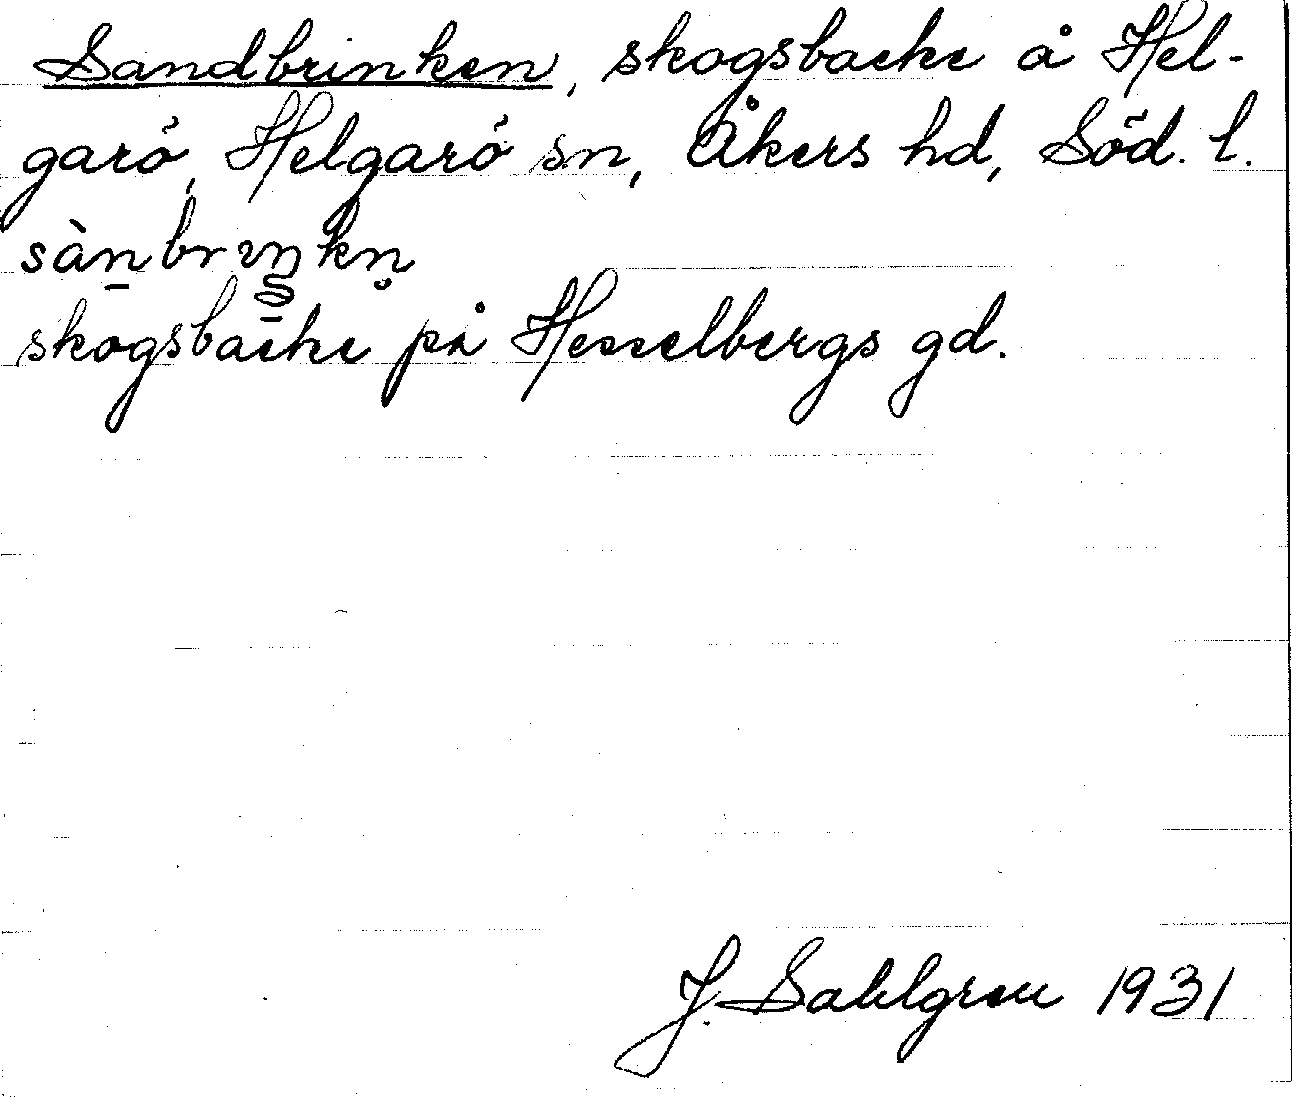 Sandbrinken, skogsbacke å Hel-
garö, Helgarö sn, Åkers hd, Söd. l.
sànbrıŋkn̥
skogsbacke på Hesselbergs gd.
J. Sahlgren 1931